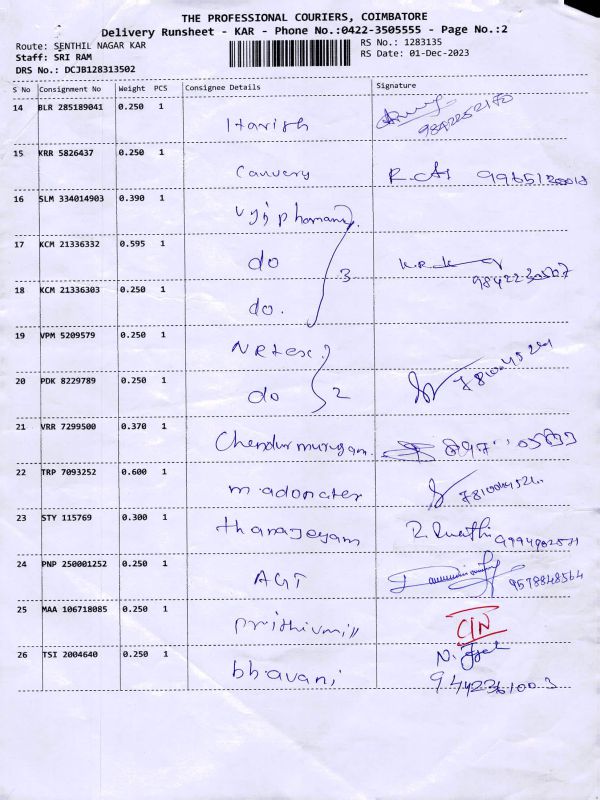 THE PROFESSIONAL COURIERS, COIMBATORE
Delivery Runsheet - KAR - Phone No.:0422-3505555 - Page No.:2
Route: SENTHIL NAGAR KAR RS No.: 1283135
Staff: SRI RAM RS Date: 01-Dec-2023
DRS No.: DCJB128313502
S No Consignment No Weight PCS Consignee Details Signature
14 BLR 285189041 0.250 1
Harish 9842252170
15 KRR 5826437 0.250 1
Cauvery
16 SLM 334014903 0.390 1
17 KCM 21336332 0.595 1
do 3
18 KCM 21336303 0.250 1
do.
19 VPM 5209579 0.250 1
NRtex.
20 PDK 8229789 0.250 1
do 2
21 VRR 7299500 0.370 1
Chendurmurugan.
22 TRP 7093252 0.600 1
23 STY 115769 0.300 1
24 PNP 250001252 0.250 1
AGT 9578848564
25 MAA 106718085 0.250 1
prithivmill
26 TSI 2004640 0.250 1
bhavani 9442361003